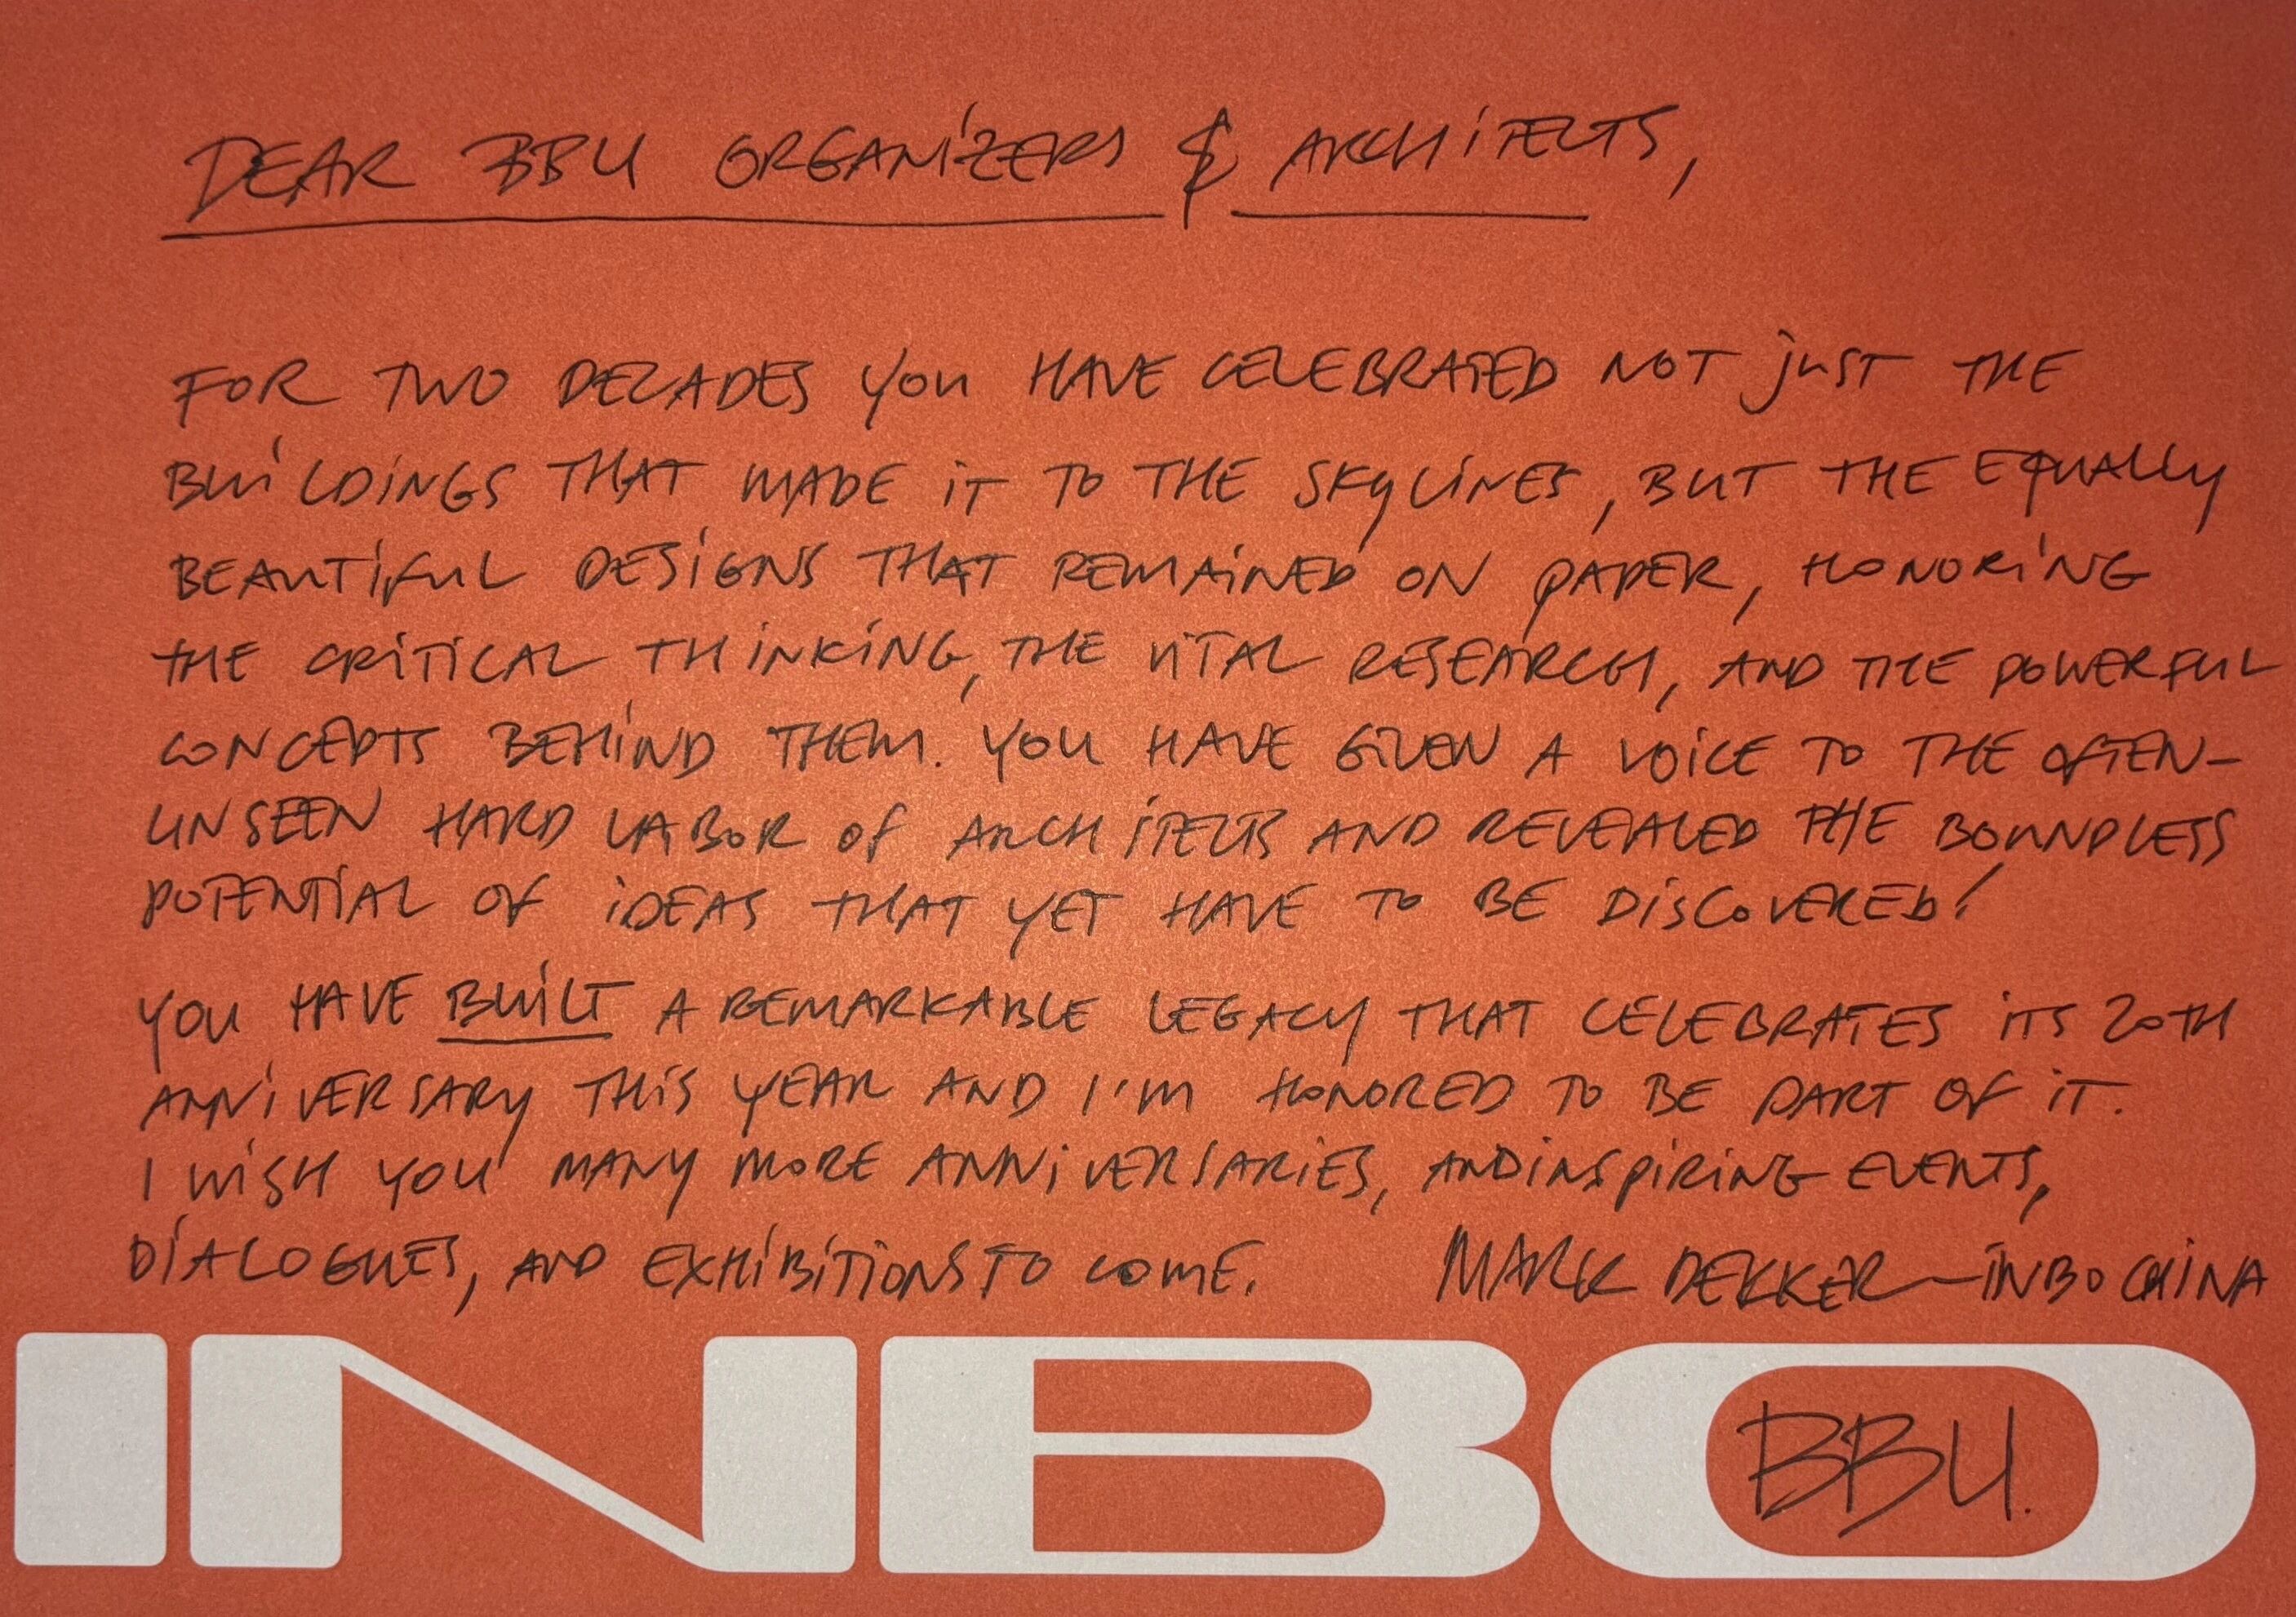 DEAR BBU ORGANIZERS & ARCHITECTS,
FOR TWO DECADES YOU HAVE CELEBRATED NOT JUST THE
BUILDINGS THAT MADE IT TO THE SKYLINES, BUT THE EQUALLY
BEAUTIFUL DESIGNS THAT REMAINED ON PAPER, HONORING
THE CRITICAL THINKING, THE VITAL RESEARCH, AND THE POWERFUL
CONCEPTS BEHIND THEM. YOU HAVE GIVEN A VOICE TO THE OFTEN-
UNSEEN HARD LABOR OF ARCHITECTS AND REVEALED THE BOUNDLESS
POTENTIAL OF IDEAS THAT YET HAVE TO BE DISCOVERED!
YOU HAVE BUILT A REMARKABLE LEGACY THAT CELEBRATES ITS 20TH
ANNIVERSARY THIS YEAR AND I'M HONORED TO BE PART OF IT.
I WISH YOU MANY MORE ANNIVERSARIES, AND INSPIRING EVENTS,
DIALOGUES, AND EXHIBITIONS TO COME. MARK DEKKER – INBO CHINA
INBO
BBU.